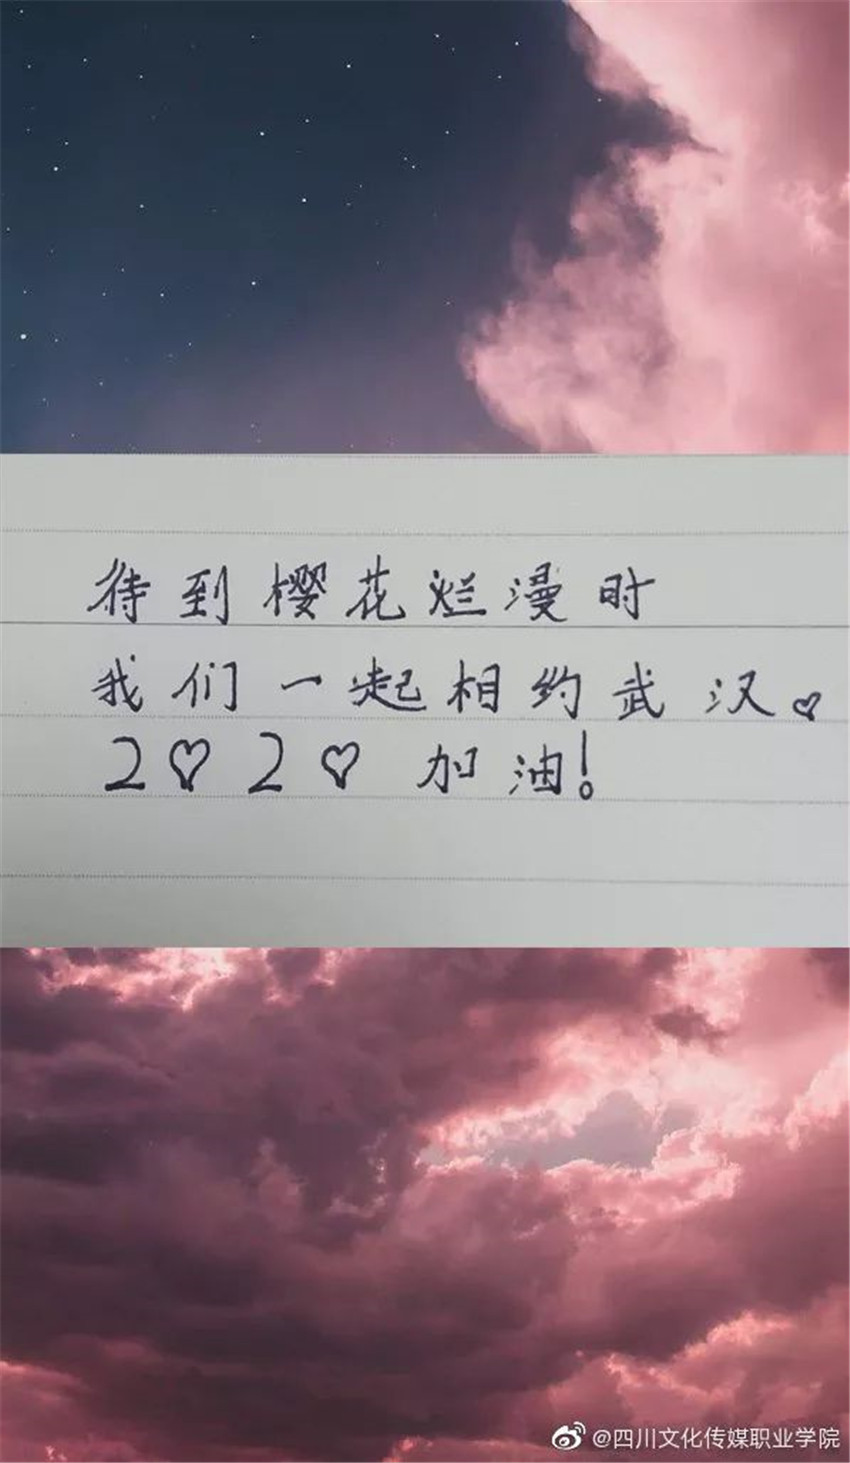 待到樱花烂漫时
我们一起相约武汉。
2♡2♡ 加油!
@四川文化传媒职业学院